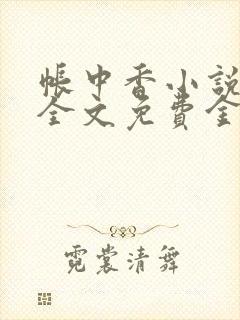 帐中香小説
全文免費全
霓裳清舞